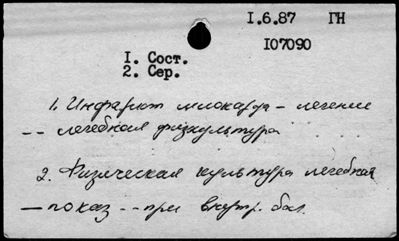 I.6.87 ГН
I07090
I. Сост.
2. Сер.
1. Инфаркт миокарда – лечение
-- лечебная физкультура
2. Физическая культура лечебная
— показ -- при внутр. бол.